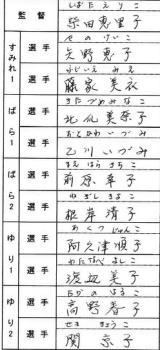 監督
しばた えりこ
柴田恵里子
すみれ1
選手
せの けいこ
矢野恵子
選手
ふじいえ みえ
藤家美衣
ばら1
選手
きただづめ みなこ
北仏美奈子
選手
おとかわ いづみ
乙川いづみ
ばら2
選手
まえはら さちこ
前原幸子
選手
ねぎし きよこ
根岸清子
ゆり1
選手
あくつ じゅんこ
阿久津順子
選手
わたなべ よしこ
渡辺美子
ゆり2
選手
たかの はるこ
高野春子
選手
せき きょうこ
関京子